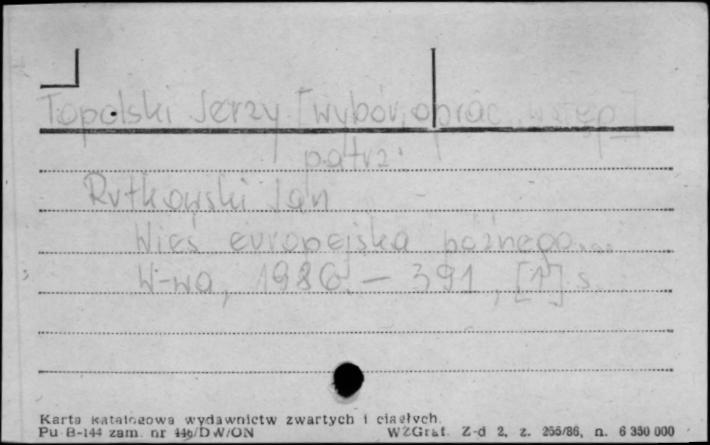 Topolski Jerzy [wybór, oprac., wstęp]
patrz:
Rutkowski Jan
Wieś europejska późnego...
W-wa, 1986. – 391, [1] s.
Karta katalogowa wydawnictw zwartych i ciągłych.
Pu B-144 zam. nr 446/DW/ON WZGraf. Z-d 2, z. 255/86, n. 6 350 000